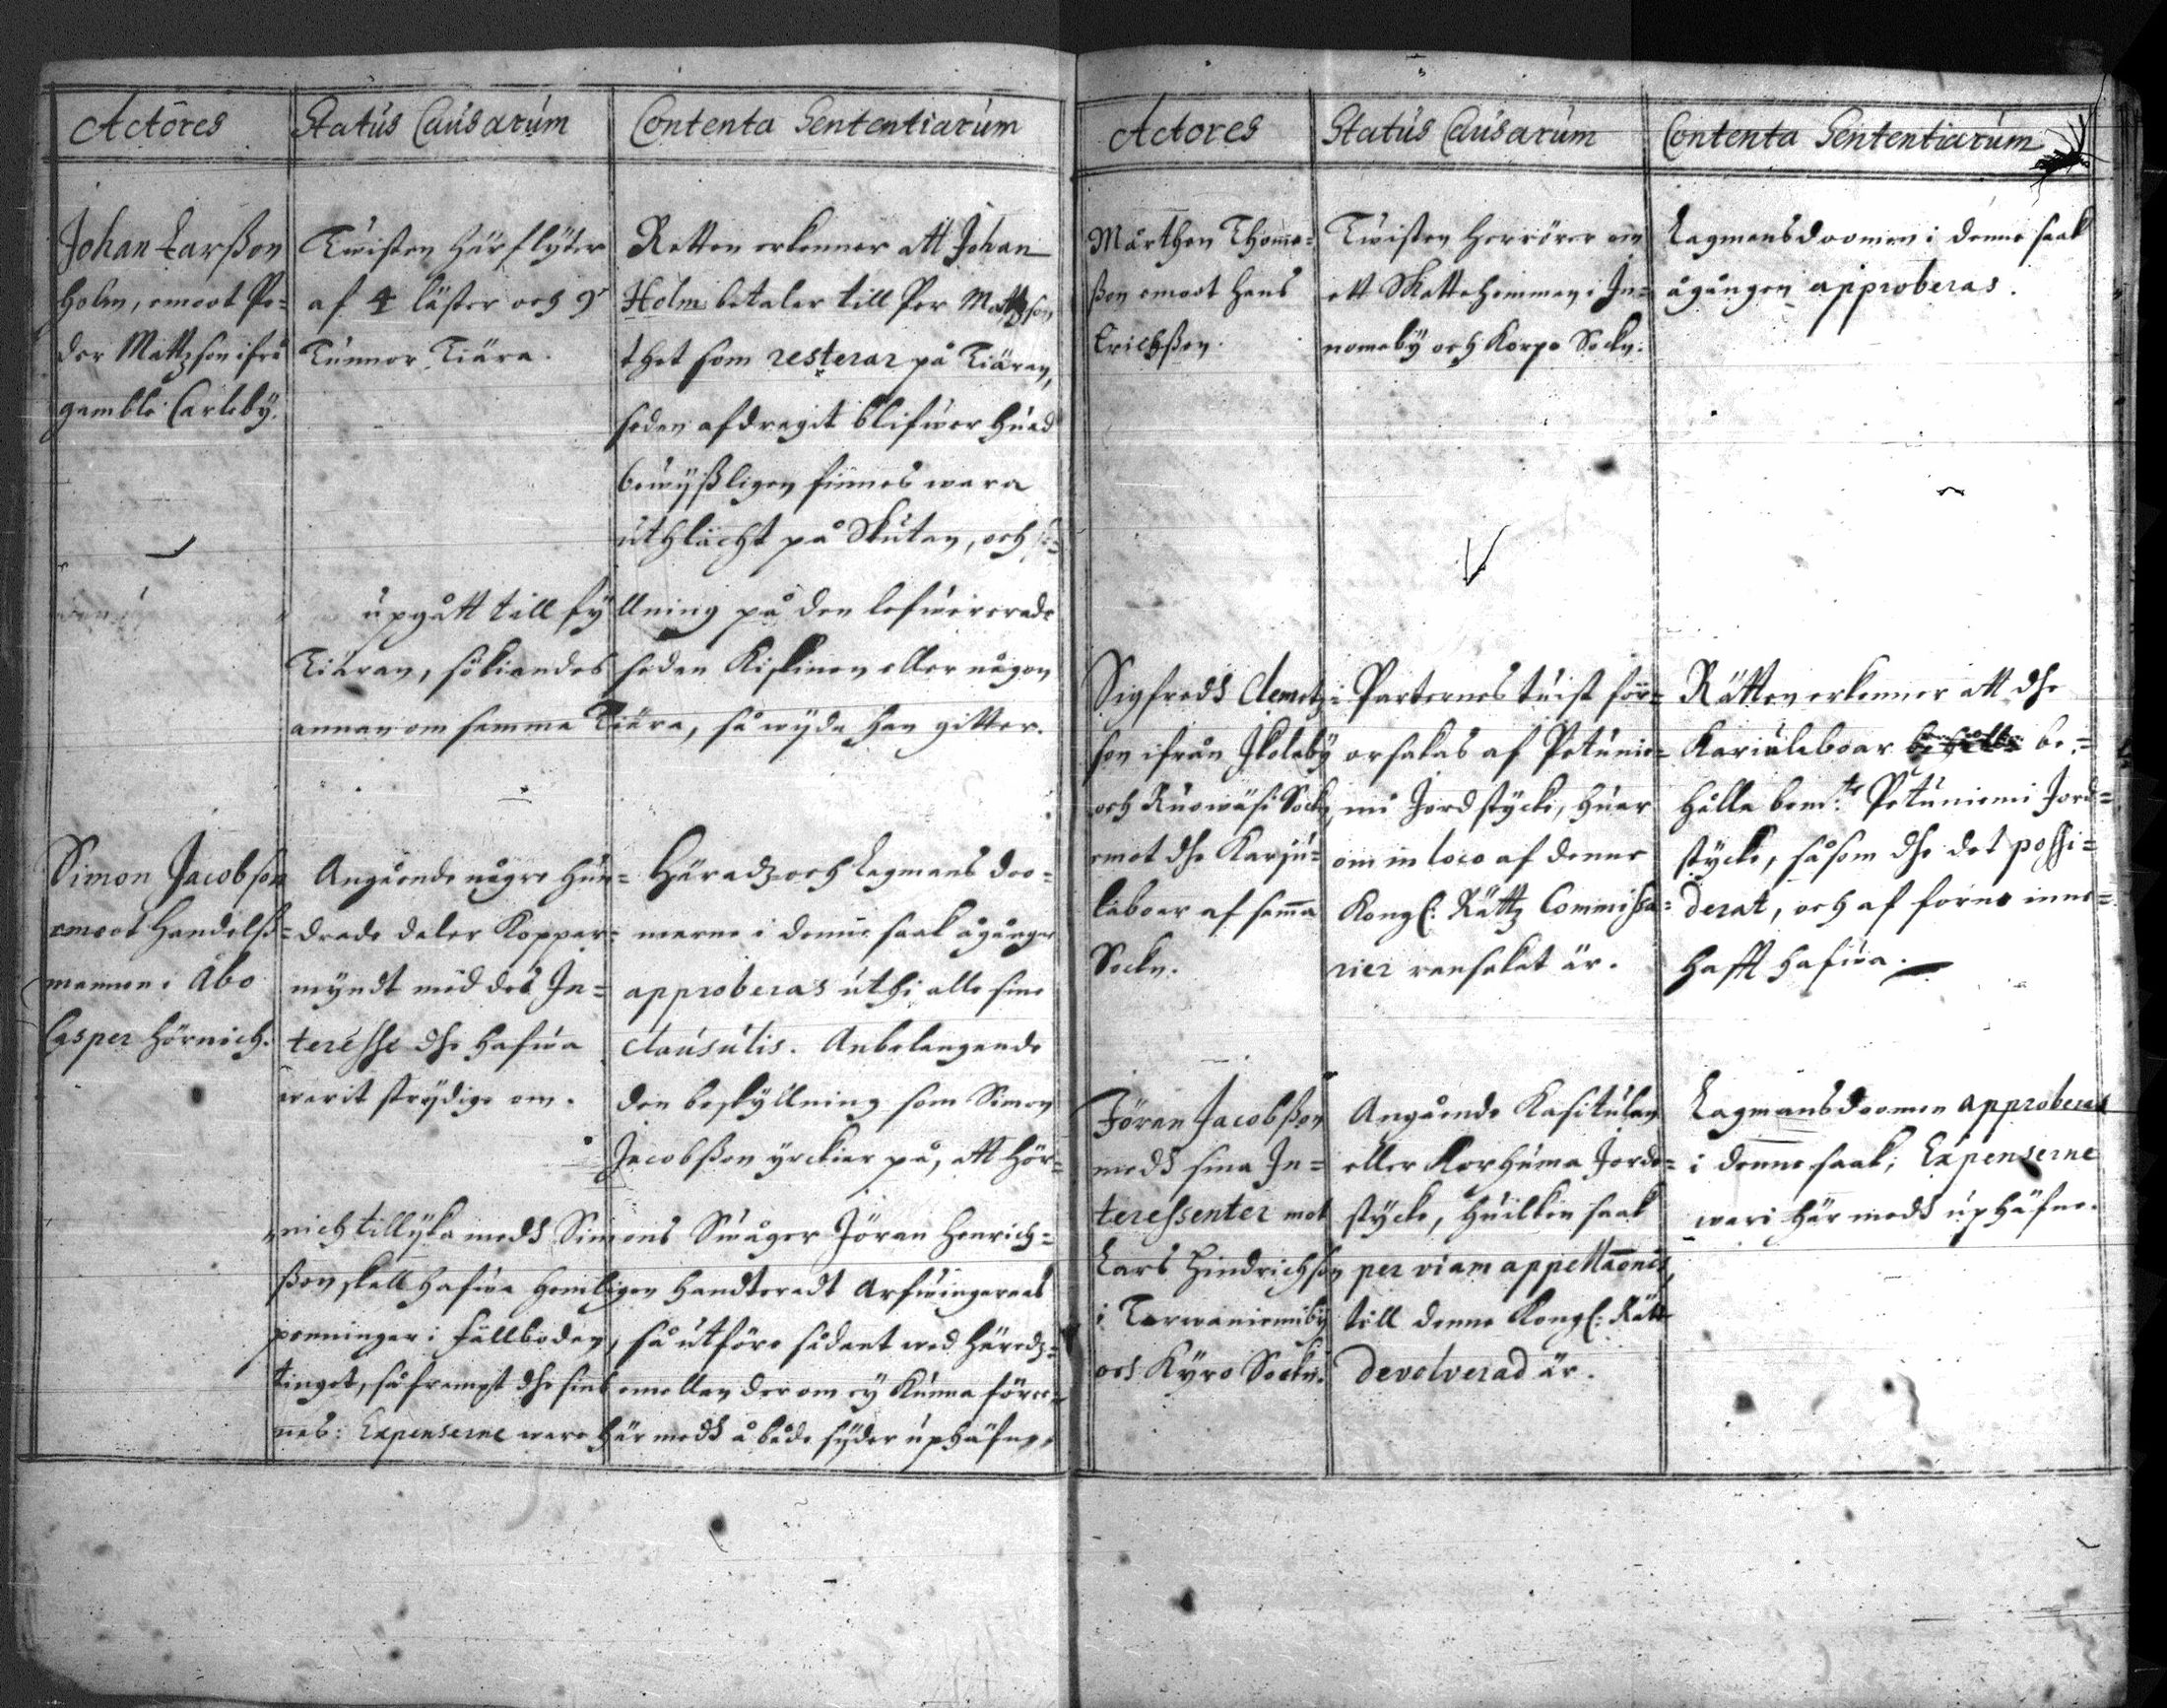 Actores
Status Causarum
Contenta Sententiarum
Johan Larßon
Holm, emoot Pe=
der Mattzson ifrå
gamble Carleby.
Twisten härflyter
af 4 läster och 9
Tunnor Tiära.
Retten erkenner att Johan
Holm betaler till Per Mattzson
thet som resterar på Tiäran,
sedan afdragit blifwer huad
bewyßligen finnes wara
uthlächt på Skutan, och
upgått till fyllning på den lefwererade
Tiäran, sökiandes sedan Kiskinen eller någon
annan om samma Tiära, så wyda han gitter.
Simon Jacobson
emoot Handelß=
mannen i Åbo
Casper Hörnich.
Angående någre Hun=
drade daler Koppar=
myndt med des In=
teresse dhe hafwa
warit strydige om.
Häradz och Lagmans doo=
marne i denne saak ågångne
approberas uthi alle sine
clausulis. Anbelangende
den beskyllning som Simon
Jacobßon yrckier på, att Hör=
nich tillyka medh Simons Swåger Jöran Henrich=
ßon skall hafwa hemligen handteradt Arfwingarnas
penningar i Fällboden, så utföre sådant wed Häradz=
tinget, såframpt dhe sins emellan der om ey kunna före=
nas: Expenserne ware här medh å både syder uphäfne.
Actores
Status Causarum
Contenta Sententiarum
Mårthen Thoma=
ßon emoot Hans
Erichßon.
Twisten herrörer om
ett Skattehemman i In=
nomeby och Korpo Sockn.
Lagmansdoomen i denne saak
ågången approberas.
Sigfredh Clemetz=
son ifrån Skolaby
och Ruowäsi Sockn,
emot dhe Karju=
laboer af samma
Sockn.
Parternes tuist för=
orsakas af Petunie=
mi Jordstycke, huar
om in loco af denne
Kongl: Rättz Commissa=
rier ransakat är.
Rätten erkenner att dhe
Kariulaboar be=
hålla bem:te Petuniemi Jord=
stycke, såsom dhe det possi=
derat, och af forno inne=
hafft hafwa.
Jöran Jacobßon
medh sina In=
teressenter mot
Lars Hindrichßon
i Tarwaniemiby
och Kyro Sockn.
Angående Kasitulan
eller Korhuma Jorde=
stycke, huilken saak
per viam appellaōnis,
till denne Kongl: Rätt
devolverad är.
Lagmansdoomen approberas
i denne saak; Expenserne
ware här medh uphäfne.